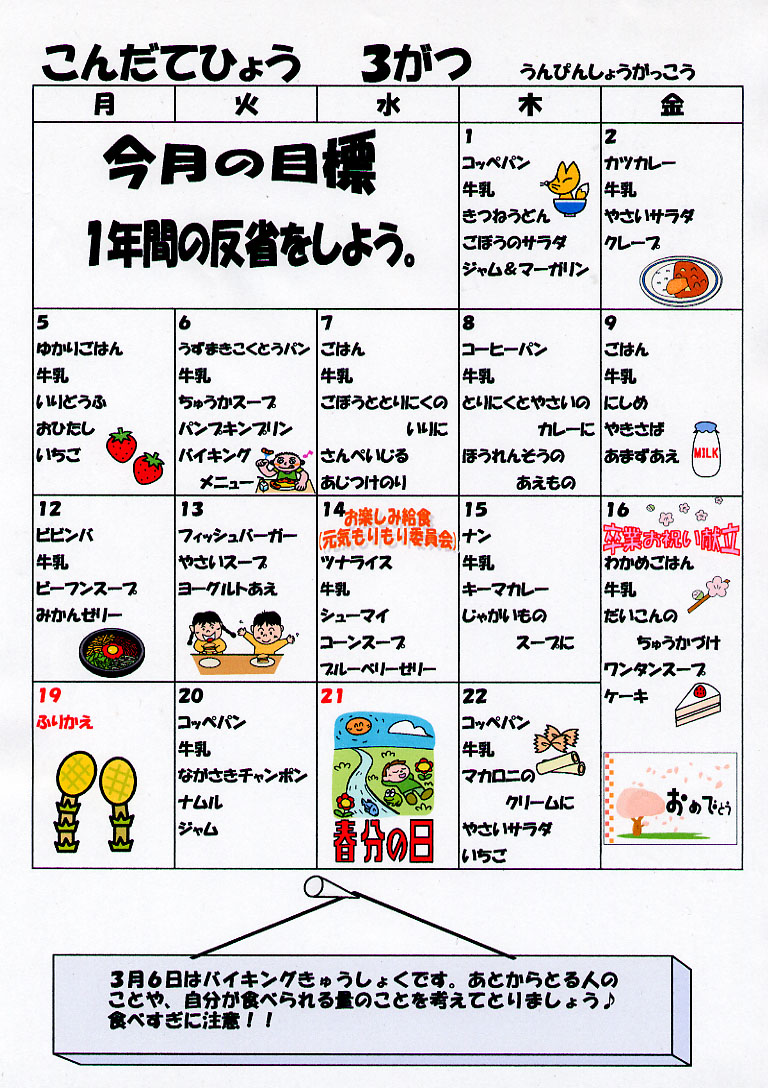 こんだてひょう 3がつ うんぴんしょうがっこう
月 火 水 木 金
今月の目標
1年間の反省をしよう。
1
コッペパン
牛乳
きつねうどん
ごぼうのサラダ
ジャム＆マーガリン
2
カツカレー
牛乳
やさいサラダ
クレープ
5
ゆかりごはん
牛乳
いりどうふ
おひたし
いちご
6
うずまきこくとうパン
牛乳
ちゅうかスープ
パンプキンプリン
バイキング
メニュー
7
ごはん
牛乳
ごぼうととりにくの
いりに
さんぺいじる
あじつけのり
8
コーヒーパン
牛乳
とりにくとやさいの
カレーに
ほうれんそうの
あえもの
9
ごはん
牛乳
にしめ
やきさば
あまずあえ
MILK
12
ビビンバ
牛乳
ビーフンスープ
みかんゼリー
13
フィッシュバーガー
やさいスープ
ヨーグルトあえ
14
お楽しみ給食
(元気もりもり委員会)
ツナライス
牛乳
シューマイ
コーンスープ
ブルーベリーゼリー
15
ナン
牛乳
キーマカレー
じゃがいもの
スープに
16
卒業お祝い献立
わかめごはん
牛乳
だいこんの
ちゅうかづけ
ワンタンスープ
ケーキ
おめでとう
19
ふりかえ
20
コッペパン
牛乳
ながさきチャンポン
ナムル
ジャム
21
春分の日
22
コッペパン
牛乳
マカロニの
クリームに
やさいサラダ
いちご
3月6日はバイキングきゅうしょくです。あとからとる人の
ことや、自分が食べられる量のことを考えてとりましょう♪
食べすぎに注意！！